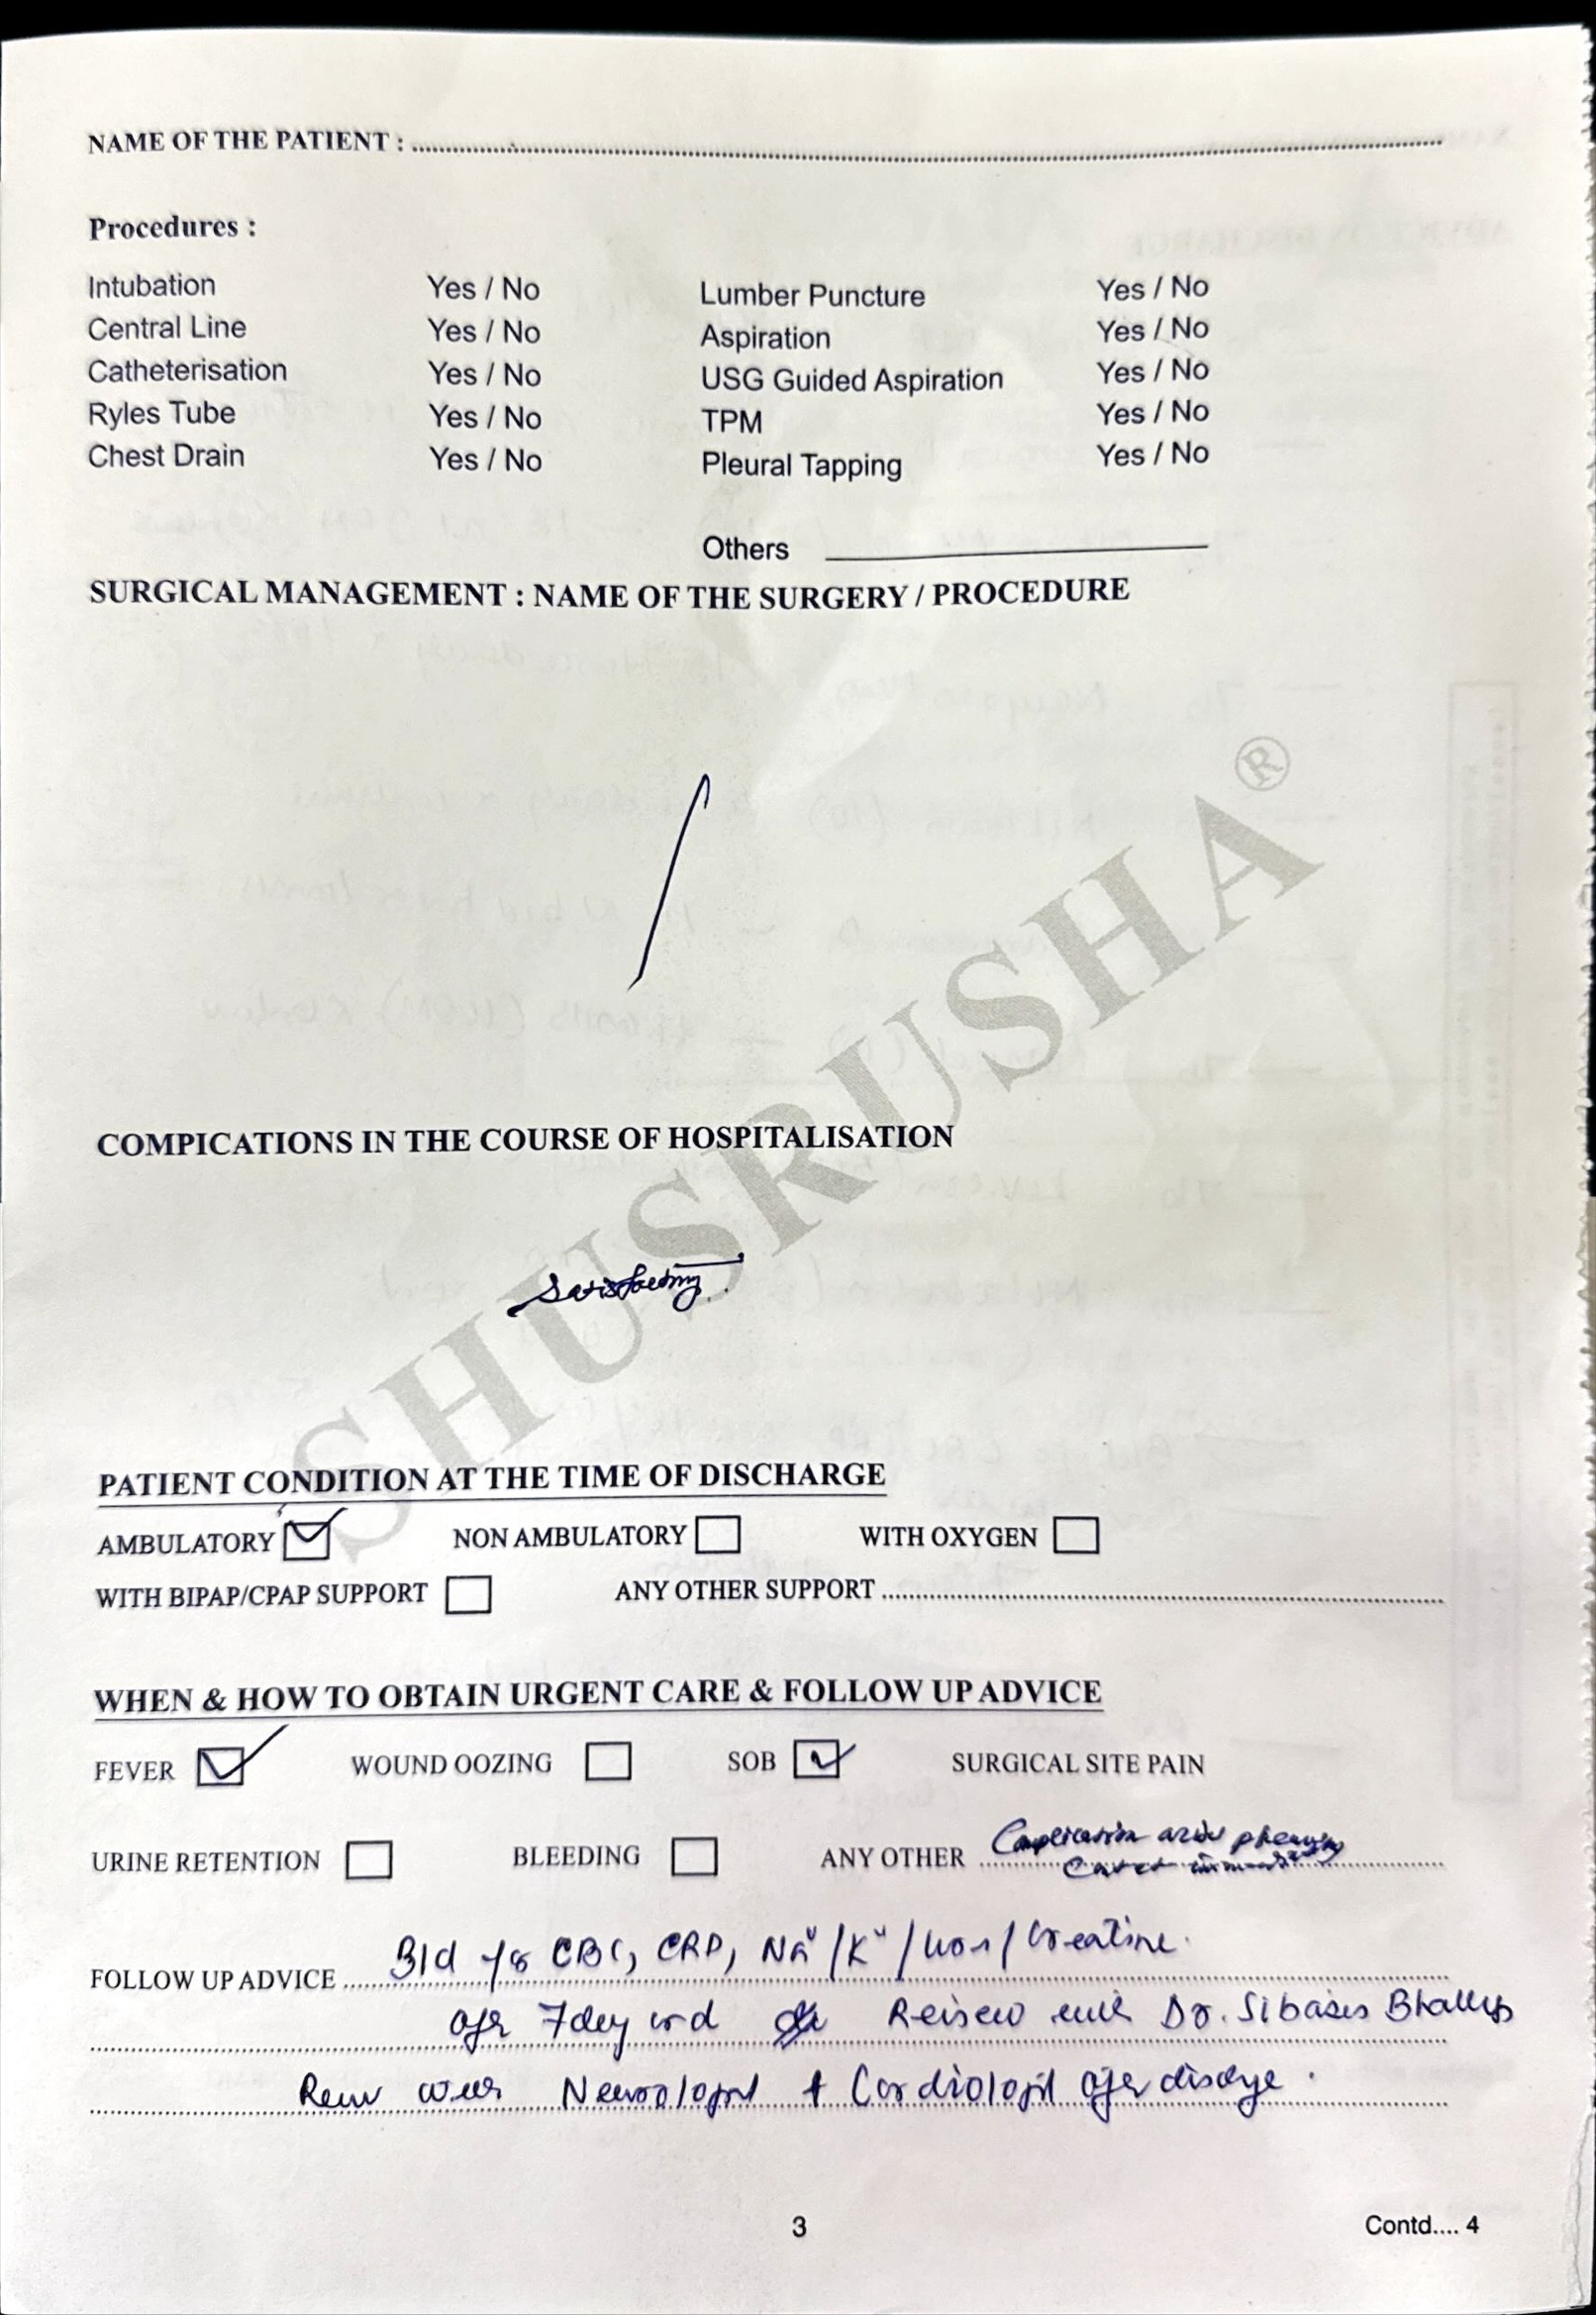 NAME OF THE PATIENT :
Procedures :
Intubation Yes / No Lumber Puncture Yes / No
Central Line Yes / No Aspiration Yes / No
Catheterisation Yes / No USG Guided Aspiration Yes / No
Ryles Tube Yes / No TPM Yes / No
Chest Drain Yes / No Pleural Tapping Yes / No
Others
SURGICAL MANAGEMENT : NAME OF THE SURGERY / PROCEDURE
SHUSRUSHA®
COMPICATIONS IN THE COURSE OF HOSPITALISATION
Satisfactory
PATIENT CONDITION AT THE TIME OF DISCHARGE
AMBULATORY NON AMBULATORY WITH OXYGEN
WITH BIPAP/CPAP SUPPORT ANY OTHER SUPPORT
WHEN & HOW TO OBTAIN URGENT CARE & FOLLOW UP ADVICE
FEVER WOUND OOZING SOB SURGICAL SITE PAIN
URINE RETENTION BLEEDING ANY OTHER
FOLLOW UP ADVICE Bld CBC, CRP, Na+/K+/ Creatine
7 day Review Dr. Sibasis
Neurologist + Cardiologist after
3 Contd.... 4